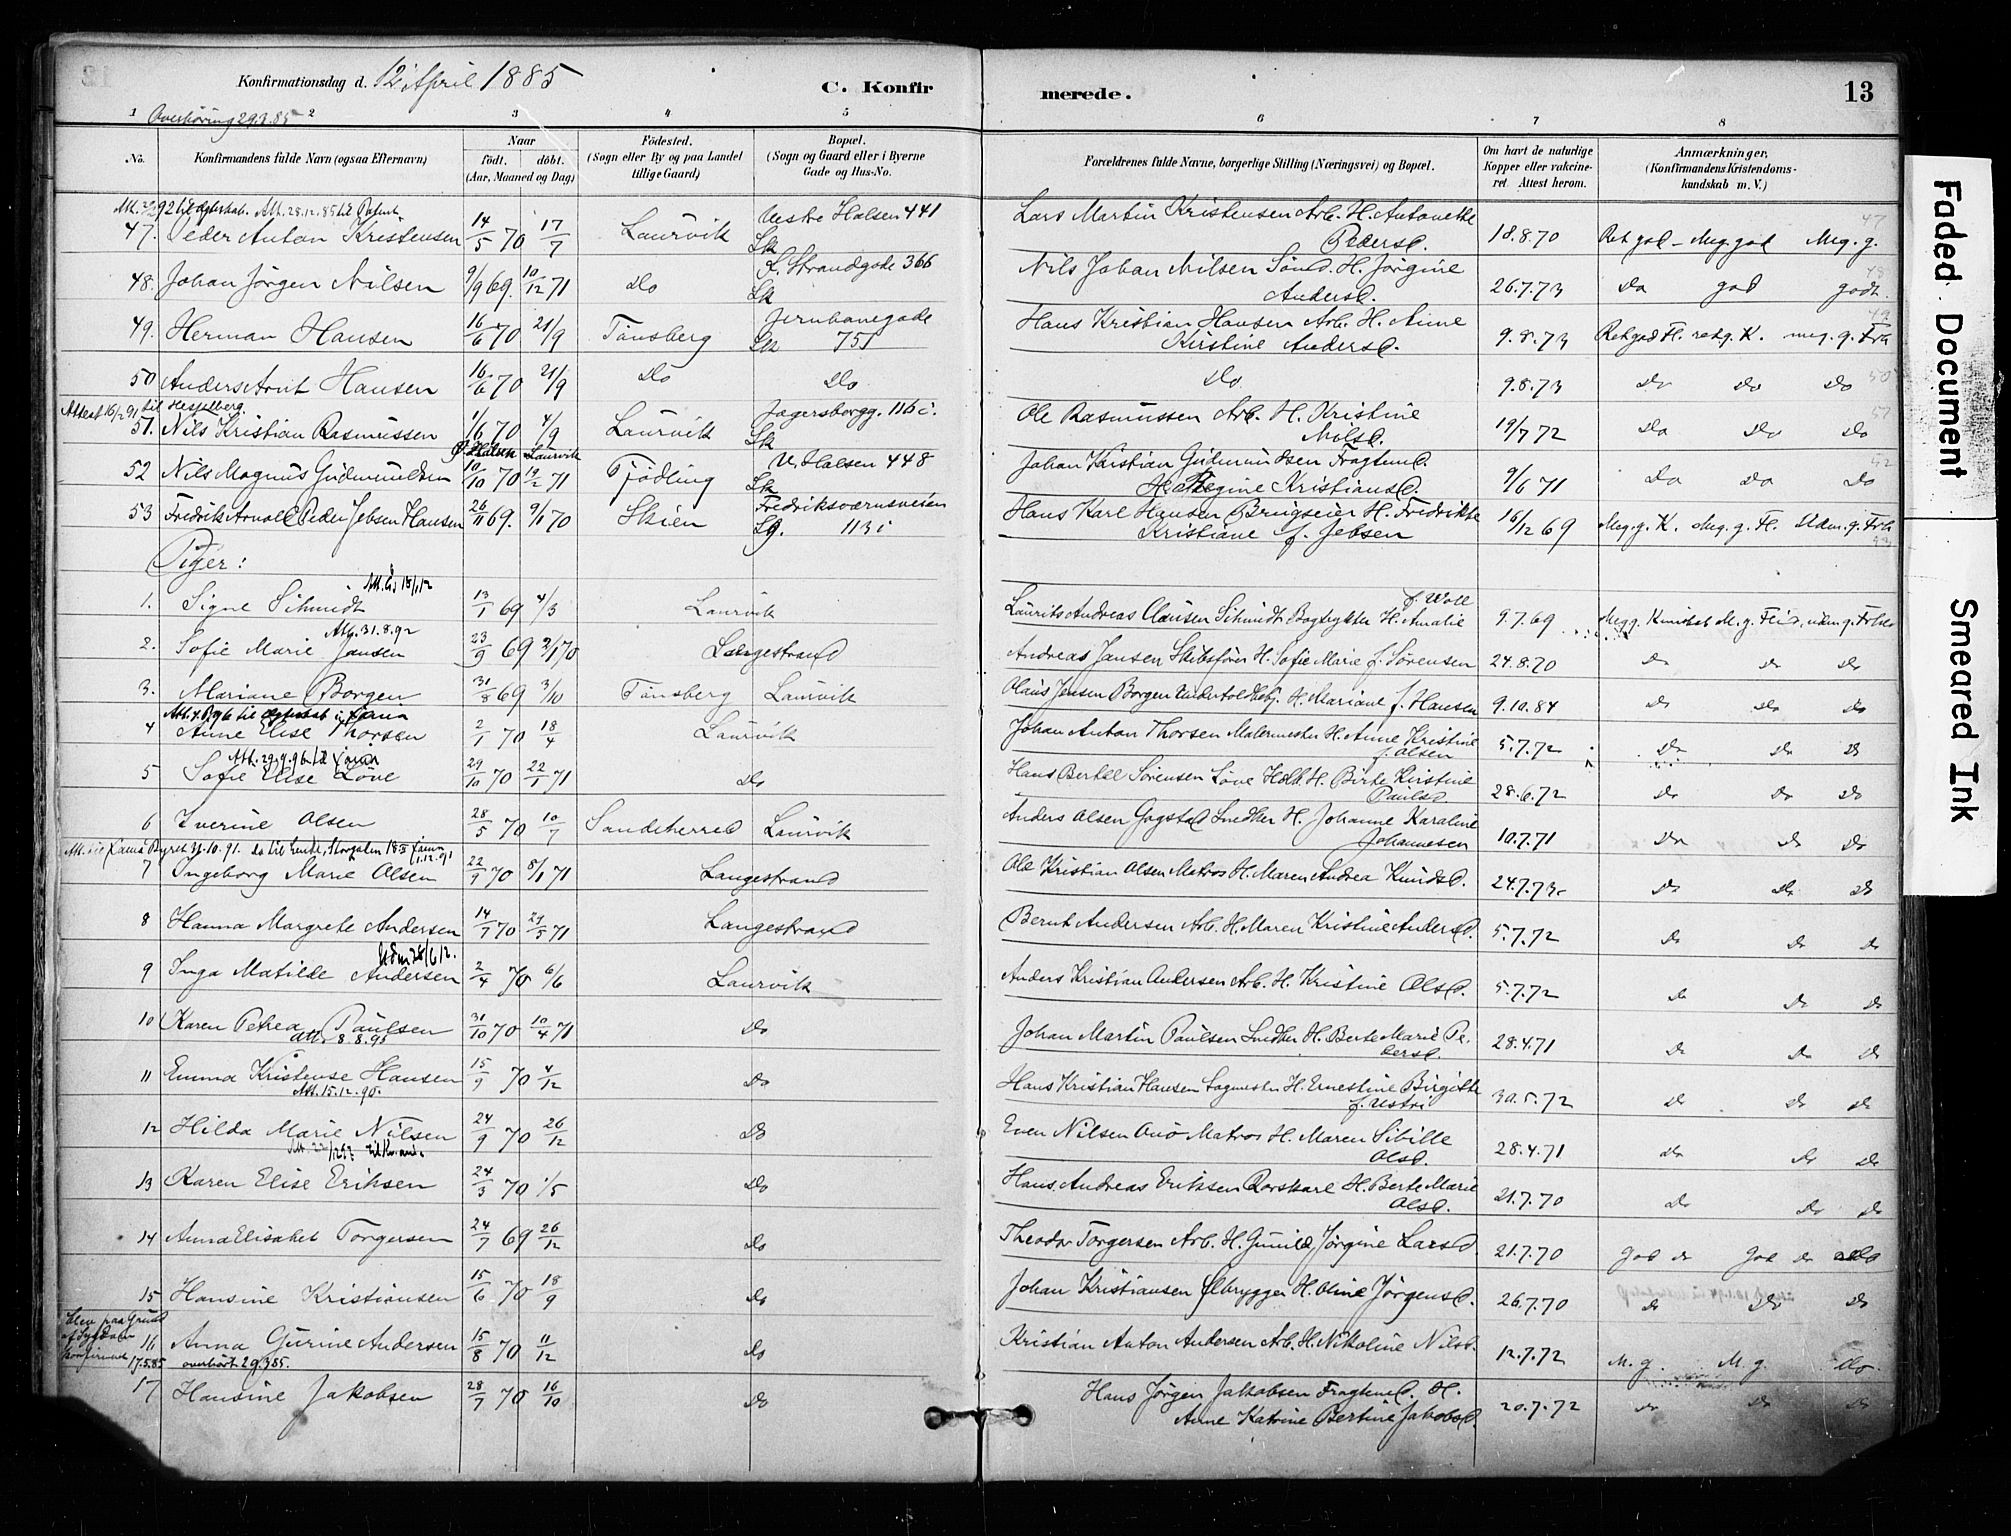 Konfirmationsdag d. 12 April 1885
C. Konfirmerede.
13
1 2 3 4 5 6 7 8
Overhøring 29.3.85
No.
Konfirmandens fulde Navn (ogsaa Efternavn)
Naar født. døbt. (Aar, Maaned og Dag)
Födested. (Sogn eller By og paa Landet tillige Gaard)
Bopæl. (Sogn og Gaard eller i Byerne Gade og Hus-No.
Forældrenes fulde Navne, borgerlige Stilling (Næringsvei) og Bopæl.
Om havt de naturlige Kopper eller vakcineret. Attest herom.
Anmærkninger, (Konfirmandens Kristendomskundskab m. V.)
47. Peder Anton Kristensen 14/5 70 17/7 Laurvik Vestre Halsen 441 Sk Lars Martin Kristensen Arb. H. Antonette Pedersd. 18.8.70 Ret god - Meg. god Meg. g.
48. Johan Jørgen Nilsen 9/9 69. 10/12 71 Do L. Strandgade 366 Sk Nils Johan Nilsen Sömd. H. Jørgine Andersd. 26.7.73 Do god godt.
49. Herman Hansen 16/6 70 21/9 Tønsberg Jernbanegade 751 Sk Hans Kristian Hansen Arb. H. Anne Kirstine Andersd. 9.8.73 Ret god Fl. retg. K. meg. g. Frh
50 Anders Arnt Hansen 16/6 70 21/9 Do Do Do 9.8.73 Do Do Do
Attest 16/2 91 til Hesselberg.
51. Nils Kristian Rasmussen 1/6 70 4/9 Laurvik Jagersborgg. 116 i. Sk Ole Rasmussen Arb. H. Kristine Nilsd. 19/7 72 Do Do Do
52 Nils Magnus Gudmundsen 10/10 70 19/2 71 Tjødling V. Halsen 448 Sk Johan Kristian Gudmundsen Fragtmd. H. Regine Kristiansd. 9/6 71 Do Do Do
53 Fredrik Arnold Peder Jebsen Hansen 26/11 69. 9/1 70 Skien Fredriksværnsveien 113 i Sg. Hans Karl Hansen Brugseier H. Fredrikke Kristiane f. Jebsen 16/12 69 Meg. g. K. Meg. g. Fl. Udm. g. Frh
Piger:
1. Signe Schmidt 13/1 69 4/3 Laurvik Laurits Andreas Clausen Schmidt Bogtrykker H. Amalie f. Woll 9.7.69
Att. 31.8.92
2. Sofie Marie Jansen 23/9 69 2/1 70 Langestrand Andreas Jansen Skibsfører H. Sofie Marie f. Sørensen 24.8.70 Do Do Do
3. Mariane Borgen 31/8 69 3/10 Tønsberg Laurvik Olaus Jensen Borgen Undertoldbetj. H. Mariane f. Hansen 9.10.84 Do Do Do
4 Anne Elise Thorsen 2/1 70 18/4 Laurvik Johan Anton Thorsen Malermester H. Anne Kristine f. Olsen 5.7.72 Do Do Do
5 Sofie Elise Löve 29/10 70 22/1 71 Do Hans Bertel Sørensen Löve H. Birte Kirstine Paulsd. 28.6.72 Do Do Do
6 Iverine Olsen 28/5 70 10/7 Sandeherred Laurvik Anders Olsen Gogstad Snedker H. Johanne Karoline Johannesen 10.7.71 Do Do Do
7 Ingeborg Marie Olsen 22/9 70 8/1 71 Langestrand Ole Kristian Olsen Matros H. Maren Andrea Knudsd. 24.7.73 Do Do Do
8 Hanna Margrete Andersen 14/7 70 29/5 71 Langestrand Bernt Andersen Arb. H. Maren Kristine Andersd. 5.7.72 Do Do Do
9 Inga Matilde Andersen 2/4 70 6/6 Laurvik Anders Kristian Andersen Arb. H. Kristine Olsd. 5.7.72 Do Do Do
10 Karen Petrea Paulsen 31/10 70 10/4 71 Do Johan Martin Paulsen Snedker H. Berte Marie Pedersd. 28.4.71 Do Do Do
Att. 8.8.95
11 Emma Kristense Hansen 15/9 70 4/12 Do Hans Kristian Hansen Sagmester H. Ernestine Birgitte f. Ustri 30.5.72 Do Do Do
Att. 15.12.90.
12 Hilda Marie Nilsen 24/9 70 26/12 Do Even Nilsen Matros H. Maren Sibille Olsd. 28.4.71 Do Do Do
13 Karen Elise Eriksen 24/3 70 1/5 Do Hans Andreas Eriksen Rorskarl H. Berte Marie Olsd. 21.7.70 Do Do Do
14 Anna Elisabet Torgersen 24/7 69 26/12 Do Theodor Torgersen Arb. H. Gunild Jørgine Larsd. 21.7.70 God do God do Do
15 Hansine Kristiansen 15/6 70 18/9 Do Johan Kristiansen Ølbrygger H. Oline Jörgensd. 26.7.70 Do Do Do
Blev paa Grund af Sygdom konfirmeret 17.5.85
16 Anna Gurine Andersen 15/8 70 11/12 Do Kristian Anton Andersen Arb. H. Nikoline Nilsd. 12.7.72 M. g. M. g. Do
overhørt 29.3.85.
17 Hansine Jakobsen 28/7 70 16/10 Do Hans Jørgen Jakobsen Fragtmd. H. Anne Katrine Bertine Jakobsd. 20.7.72 Do Do Do
Faded Document
Smeared Ink